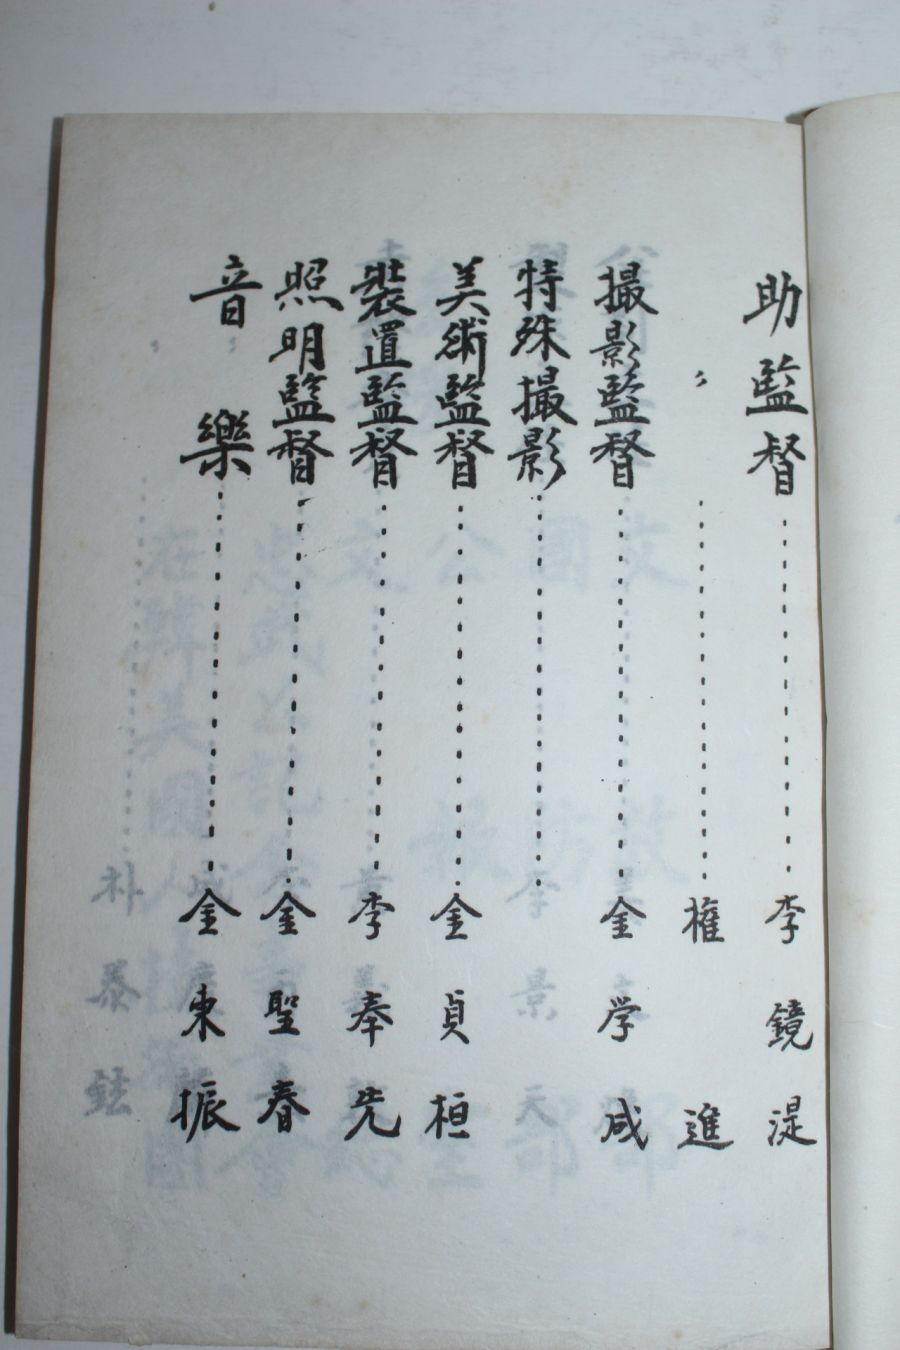 助監督……李鏡湜
〃……権進
撮影監督……金学成
特殊撮影……
美術監督……金貞桓
装置監督……李奉先
照明監督……金聖春
音樂……金東振